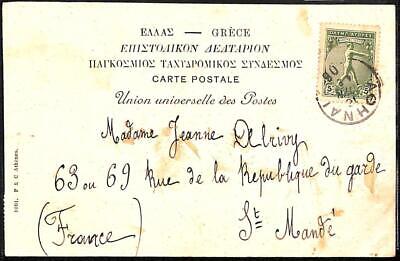 ΕΛΛΑΣ — GRÈCE
ΕΠΙΣΤΟΛΙΚΟΝ ΔΕΛΤΑΡΙΟΝ
ΠΑΓΚΟΣΜΙΟΣ ΤΑΧΥΔΡΟΜΙΚΟΣ ΣΥΝΔΕΣΜΟΣ
CARTE POSTALE
Union universelle des Postes
ΑΘΗΝΑΙ
5 5
Madame Jeanne
63 ou 69 Rue de la République du garde
St Mandé
(France)
P & C Athènes.